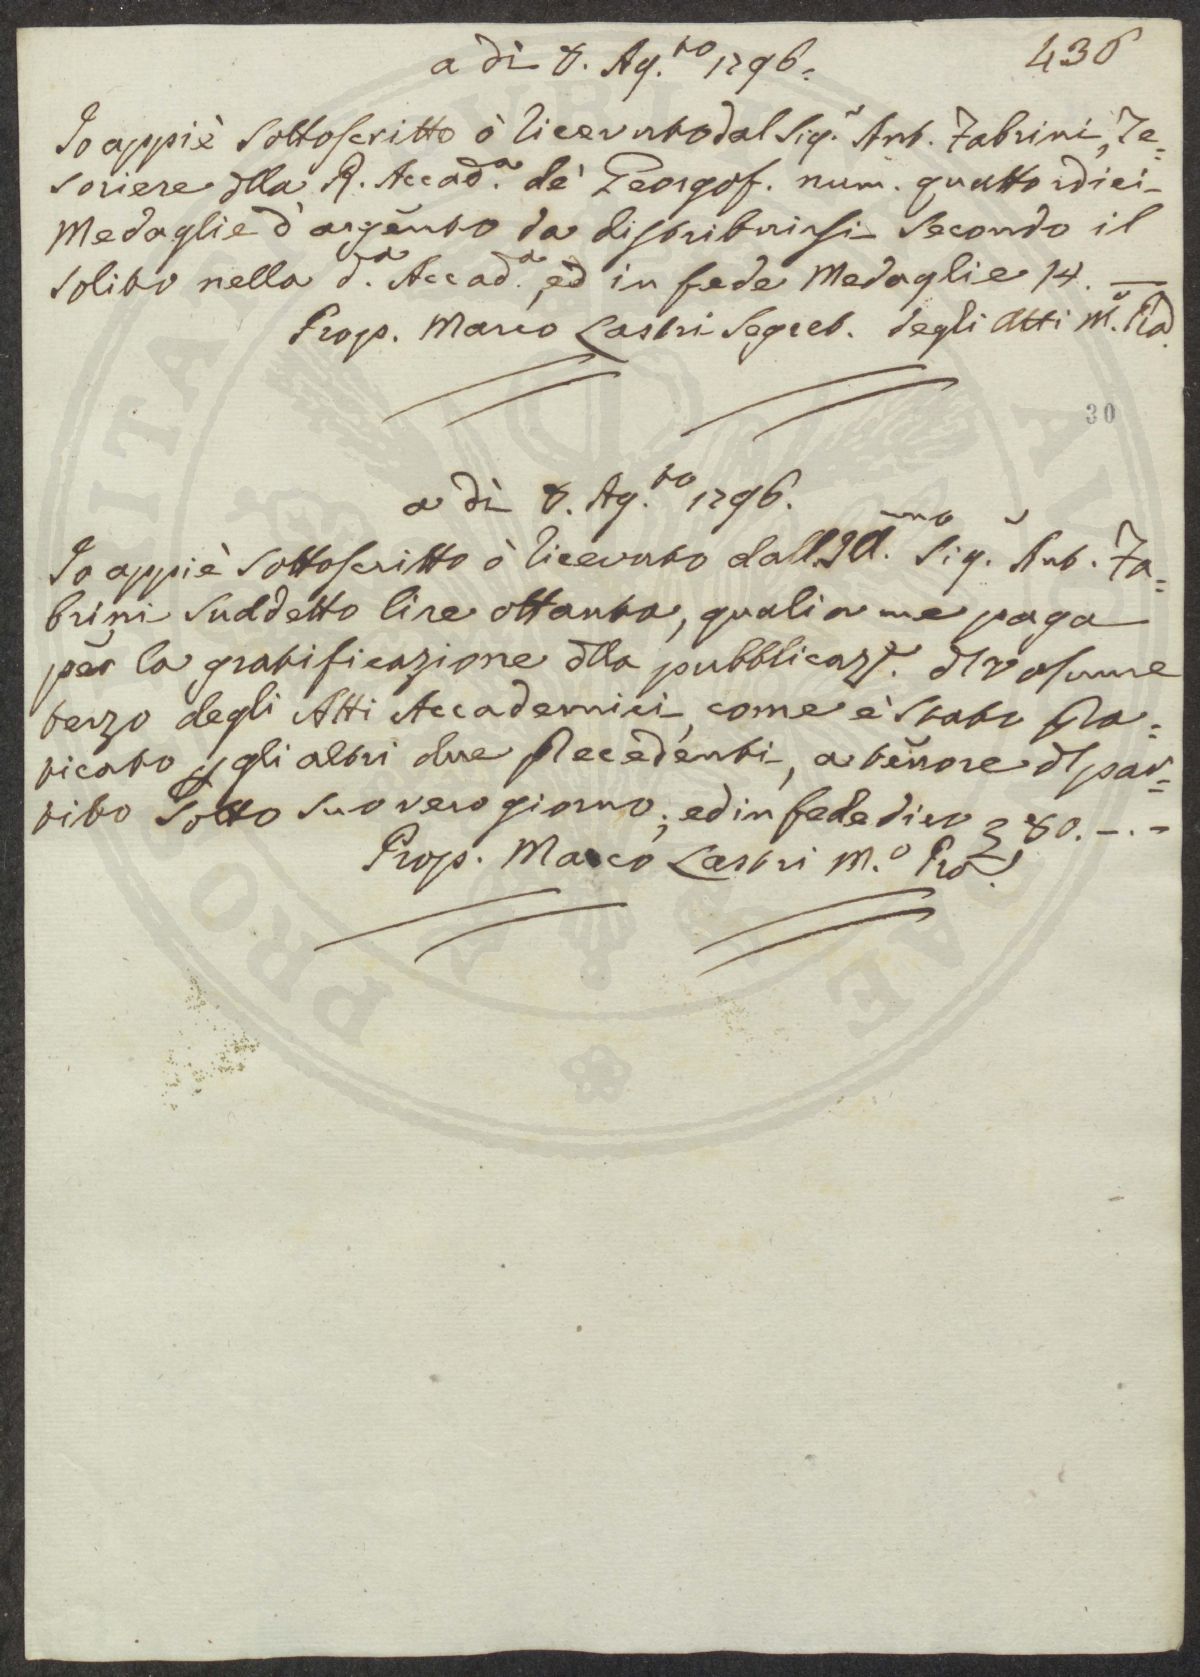 436
a dì 8. Ag.to 1796.
Io appiè sottoscritto ò ricevuto dal Sig.r Ant. Fabrini, Te=
soriere dlla R. Accad.a de' Georgof. num. quattordici
Medaglie d'argento da distribuirsi secondo il
solito nella d.a Accad.a, ed in fede Medaglie 14. —
Prop. Marco Lastri Segret. degli Atti M.o Pa.
30
a dì 8. Ag.to 1796.
Io appiè sottoscritto ò ricevuto dall' Sig.r Ant. Fa=
brini suddetto lire ottanta, quali a me paga
per la gratificazione dlla pubblicaz.e dl volume
terzo degli Atti Accademici, come è stato pra=
ticato p gli altri due precedenti, a tenore dl par=
tito sotto suo vero giorno; ed in fede dico £ 80. -. -
Prop. Marco Lastri M.o Pa.
PRO